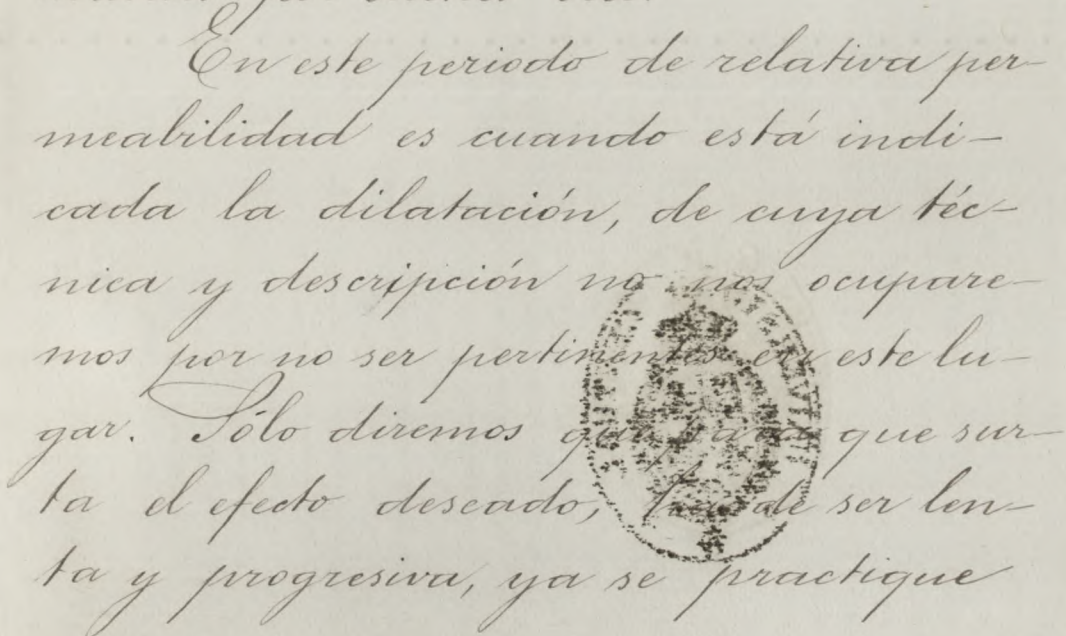 En este periodo de relativa per-
meabilidad es cuando está indi-
cada la dilatación, de cuya téc-
nica y descripción no nos ocupare-
mos por no ser pertinentes en este lu-
gar. Sólo diremos que para que sur-
ta el efecto deseado, ha de ser len-
ta y progresiva, ya se practique